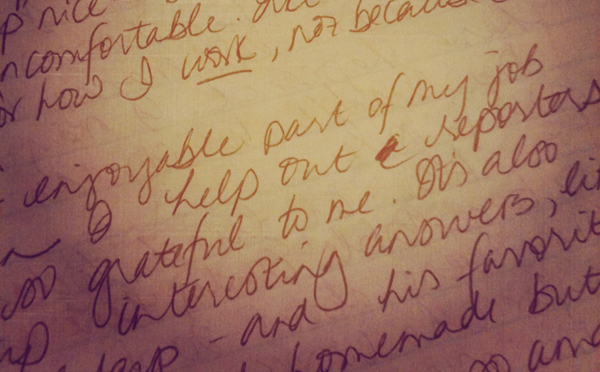 nice
ncomfortable.
or how I work, not because
enjoyable part of my job
I help out a reporters
grateful to me. It's also
up interesting answers, li
- and his favorit
homemade but
so and